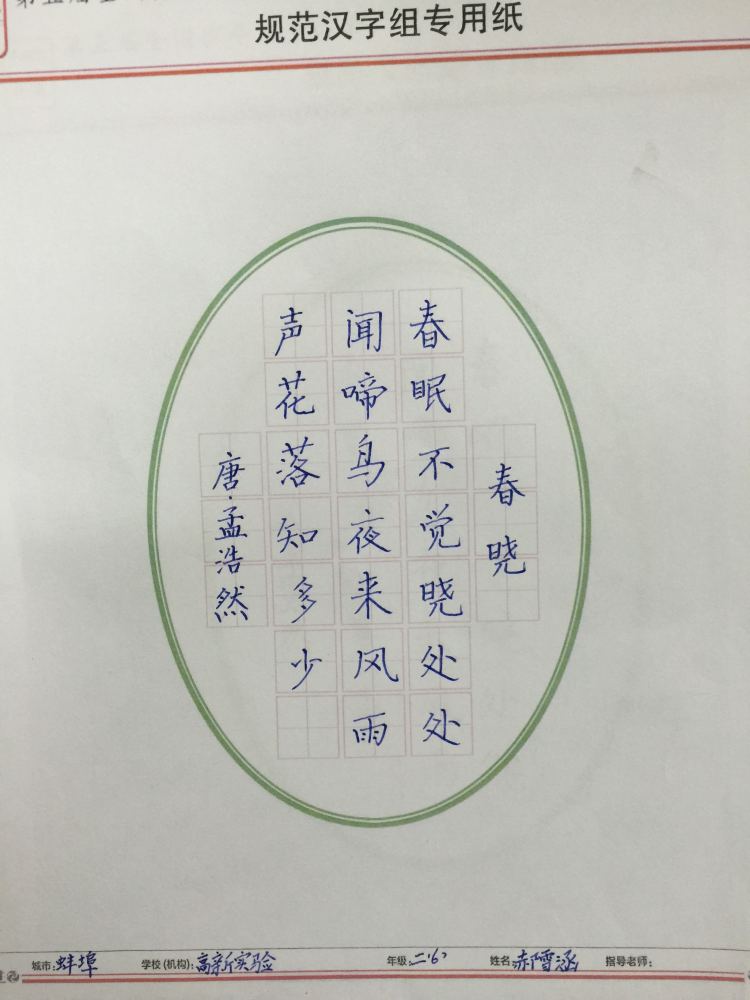 规范汉字组专用纸
春晓
春眠不觉晓处处
闻啼鸟夜来风雨
声花落知多少
唐·孟浩然
城市:蚌埠 学校(机构):高新实验 年级:二(6) 姓名:郝雪涵 指导老师: